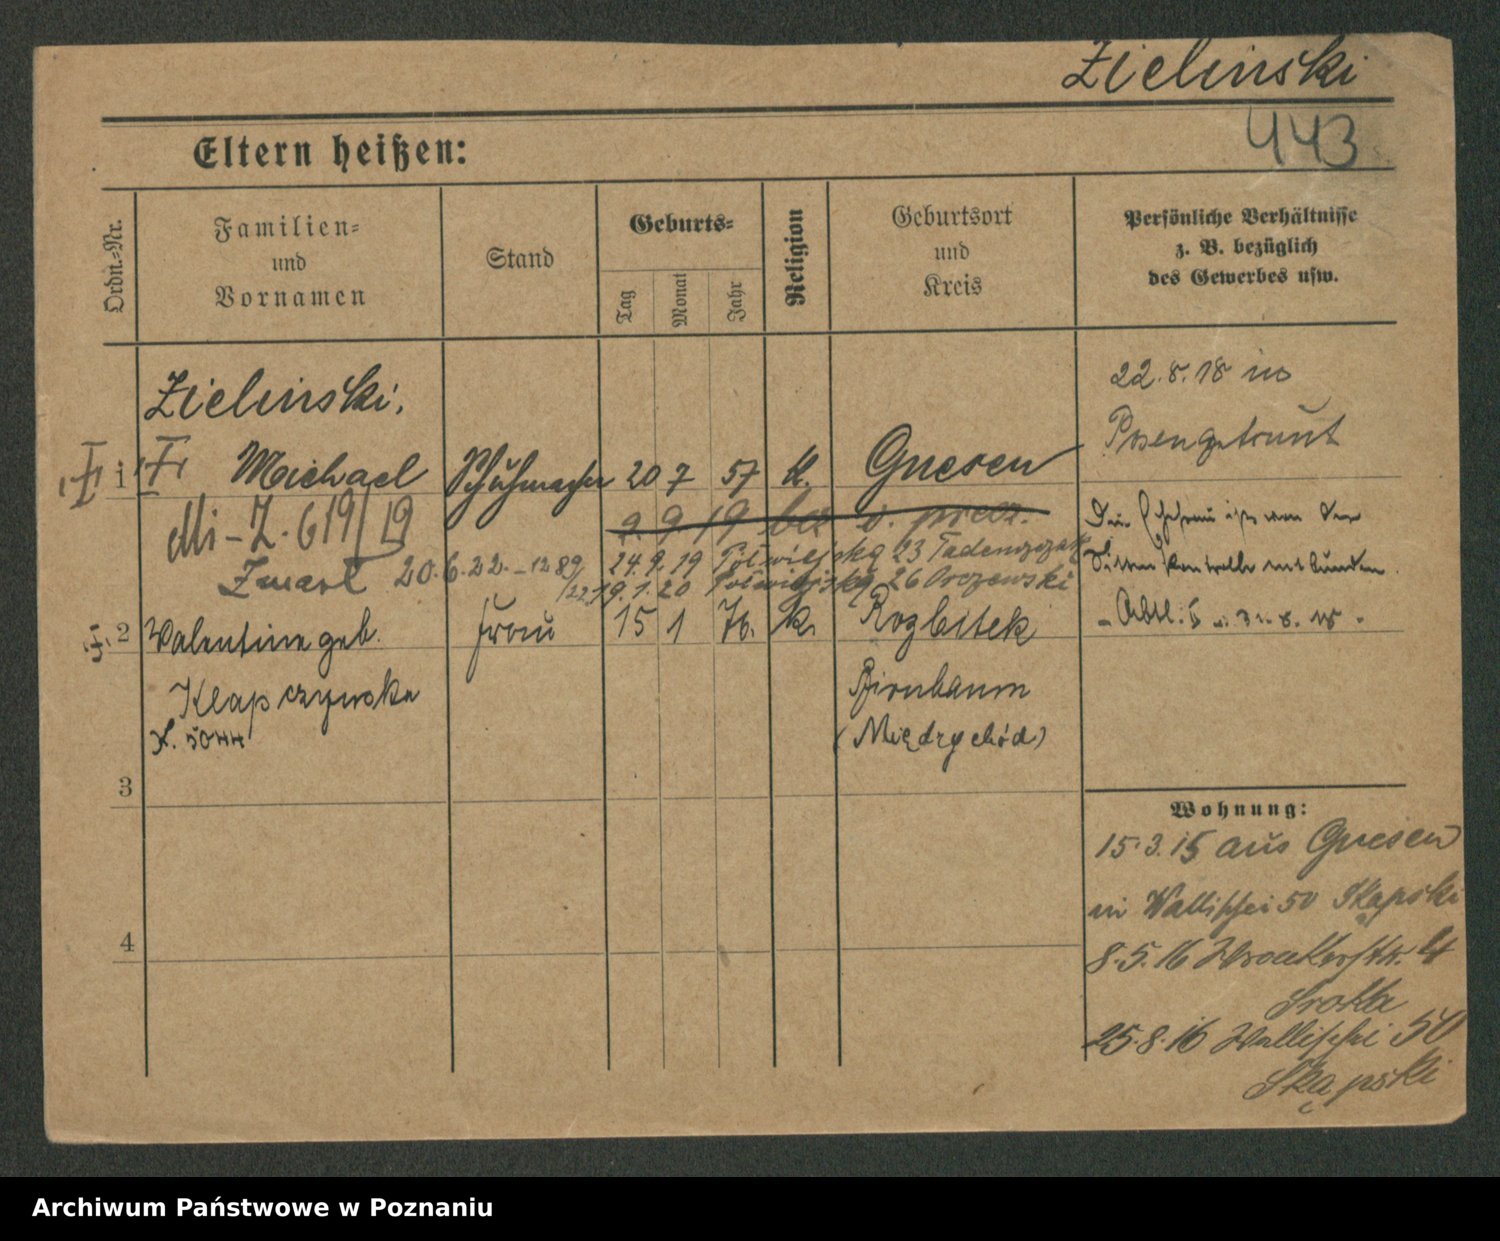 Zielinski
443
Eltern heißen:
Ordn.-Nr.
Familien-
und
Vornamen
Stand
Geburts-
Tag
Monat
Jahr
Religion
Geburtsort
und
Kreis
Persönliche Verhältnisse
z. B. bezüglich
des Gewerbes usw.
Zielinski.
22.8.18 in
Posen getraut
1 Michael Schuhmacher 20 7 57 k. Gnesen
Mi-Z. 619/19
9. 9. 19 bez v. przez.
24.9.19 Półwiejska 23
Zmarł 20.6.22.-1289/22
19.1.20 Półwiejska 26
Die Ehefrau ist von der
Sittenkontrolle entbunden.
2 Valentine geb. Frau 15 1 76. k. Rozbitek
Klapczynska Birnbaum
X. 5044 (Międzychód)
3
4
Wohnung:
15.3.15 aus Gnesen
in Wallischei 50 Skąpski
8.5.16 Wronkerstr. 4
Srokla
25.8.16 Wallischei 50
Skąpski
Archiwum Państwowe w Poznaniu